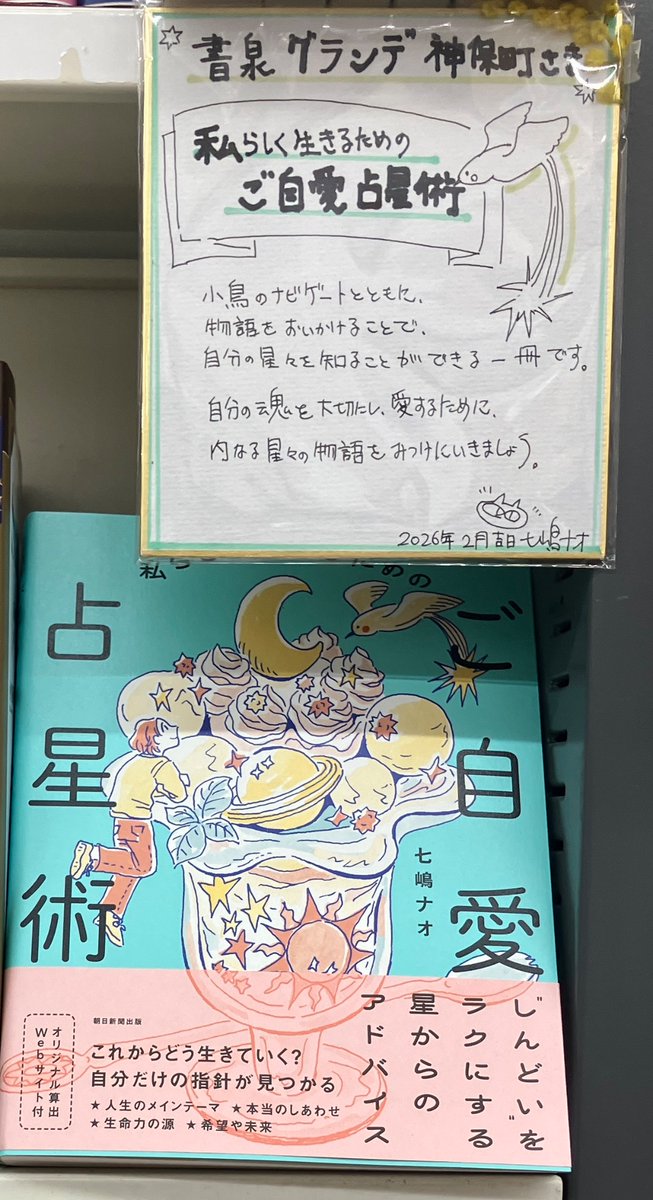 書泉グランデ 神保町さま
私らしく生きるための
ご自愛占星術
小鳥のナビゲートとともに、
物語をおいかけることで、
自分の星々を知ることができる一冊です。
自分の魂を大切にし、愛するために、
内なる星々の物語をみつけにいきましょう。
2026年2月吉日 七嶋ナオ
私ら
ための
ご自愛
占星術
七嶋ナオ
"しんどい"を
ラクにする
星からの
アドバイス
朝日新聞出版
これからどう生きていく?
自分だけの指針が見つかる
★人生のメインテーマ ★本当のしあわせ
★生命力の源 ★希望や未来
オリジナル算出
Webサイト付